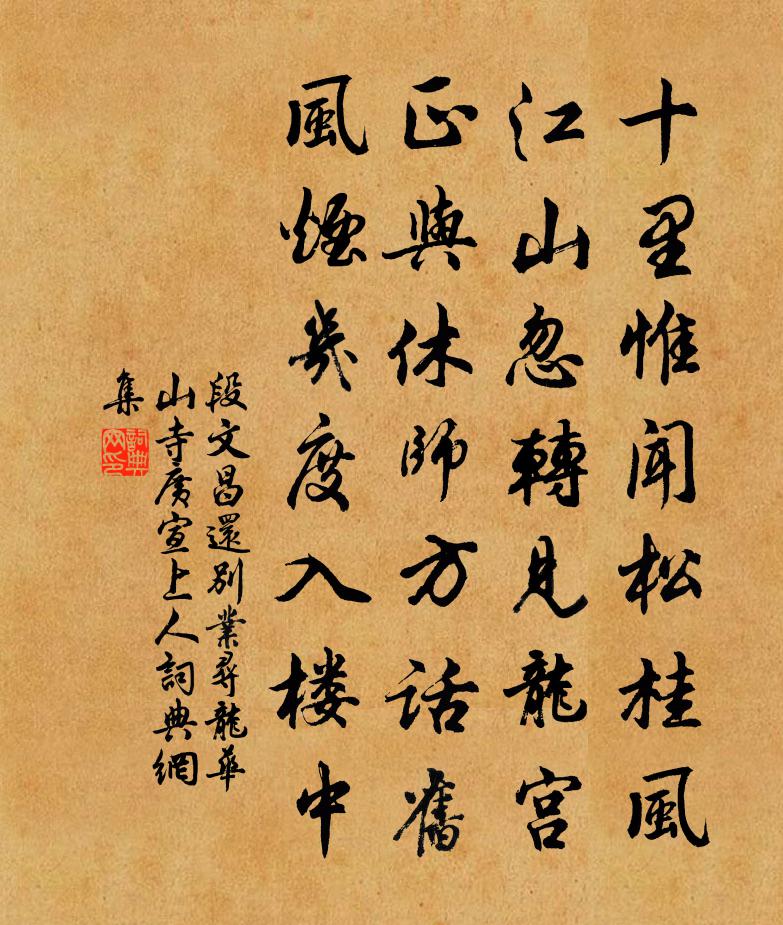 十里惟闻松桂風
江山忽轉見龍宮
正與休師方話舊
風煙幾度入楼中
段文昌還別業尋龍華
山寺廣宣上人詞典網
集
詞典
网印